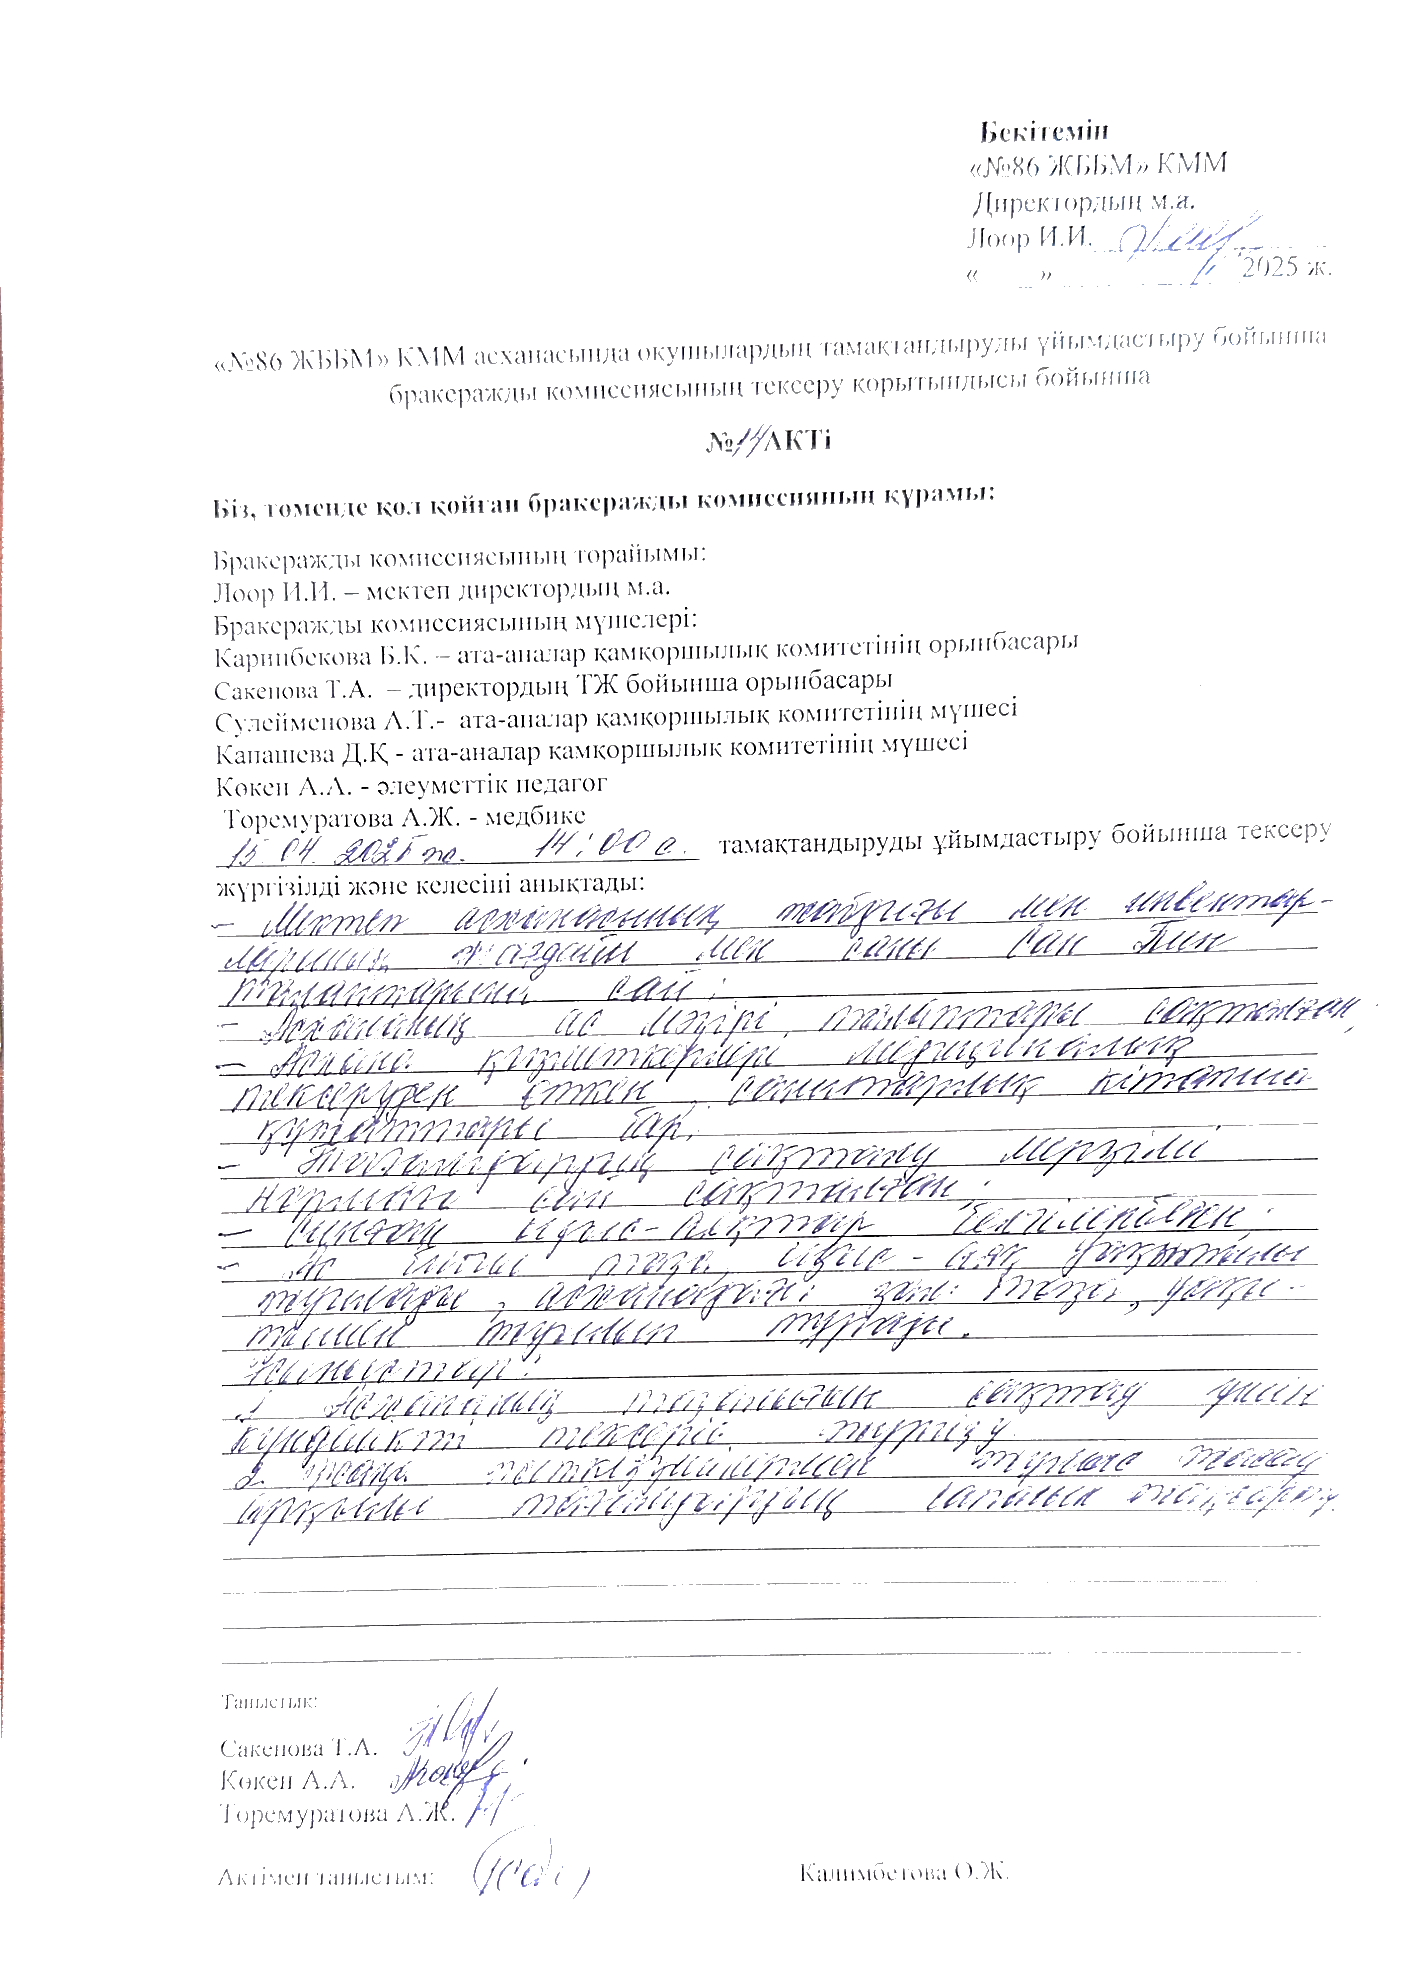 Бекітемін
«№86 ЖББМ» КММ
Директордың м.а.
Лоор И.И.
« » 2025 ж.
«№86 ЖББМ» КММ асханасында оқушылардың тамақтандыруды ұйымдастыру бойынша
бракеражды комиссиясының тексеру қорытындысы бойынша
№14 АКТі
Біз, төменде қол қойған бракеражды комиссияның құрамы:
Бракеражды комиссиясының төрайымы:
Лоор И.И. – мектеп директордың м.а.
Бракеражды комиссиясының мүшелері:
Карипбекова Б.К. – ата-аналар қамқоршылық комитетінің орынбасары
Сакенова Т.А. – директордың ТЖ бойынша орынбасары
Сулейменова А.Т.- ата-аналар қамқоршылық комитетінің мүшесі
Капашева Д.Қ - ата-аналар қамқоршылық комитетінің мүшесі
Көкен А.А. - әлеуметтік педагог
Торемуратова А.Ж. - медбике
15 04. 2025 ж. 14:00 с. тамақтандыруды ұйымдастыру бойынша тексеру
жүргізілді және келесіні анықтады:
– Мектеп асханасының жабдығы мен инвентар-
ларының жағдайы мен саны Сан Пин
талаптарына сай;
– Асхананың ас мәзірі талаптары сақталған,
– Асхана қызметкерлері медициналық
тексеруден өткен, санитарлық кітапша
құжаттары бар;
– Тағамдардың сақталу мерзімі
нормаға сай сақталған;
– Сынған ыдыс-аяқтар белгіленбеген;
– Ас блогы таза, ыдыс-аяқ уақытылы
жуылады, асханадағы зал таза, уақы-
тымен жуылып тұрады.
Ұсыныстар:
1. Асхананың тазалығын сақтау үшін
күнделікті тексеріс жүргізу
2. жаңа жеткізушілермен жұмыс жасау
арқылы тағамдардың сапасын жақсарту.
Таныстық:
Сакенова Т.А.
Көкен А.А.
Торемуратова А.Ж.
Актімен таныстым: Калимбетова О.Ж.